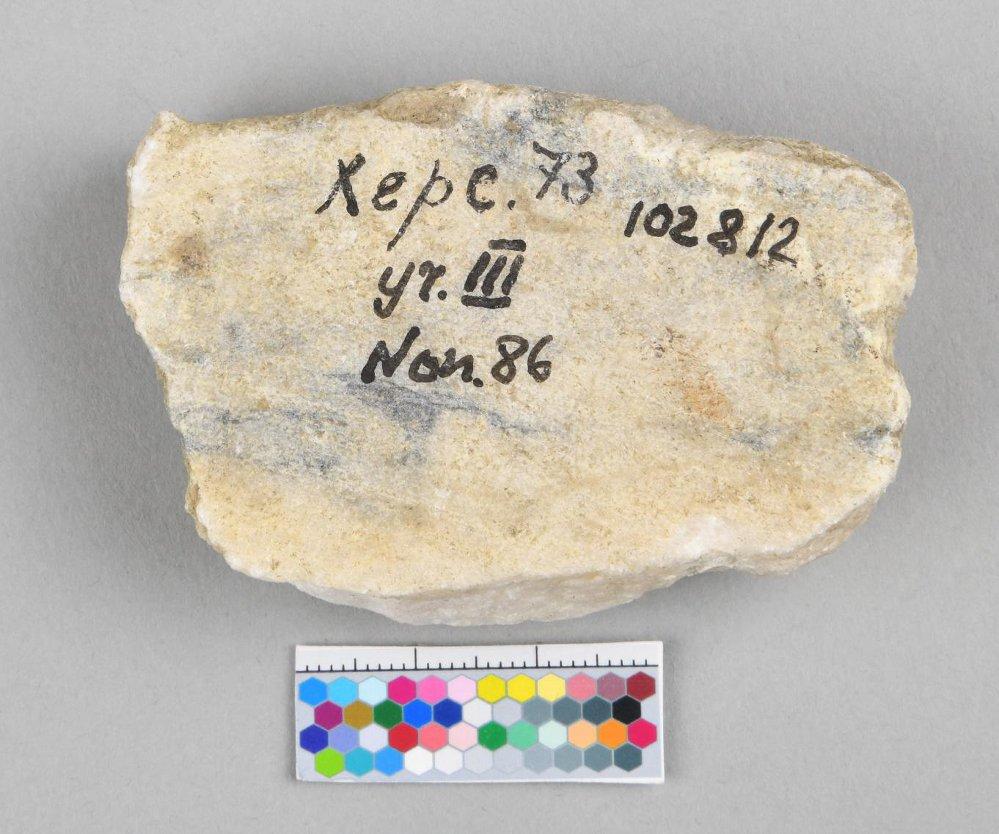 Херс. 73
102812
уч. III
Поп. 86